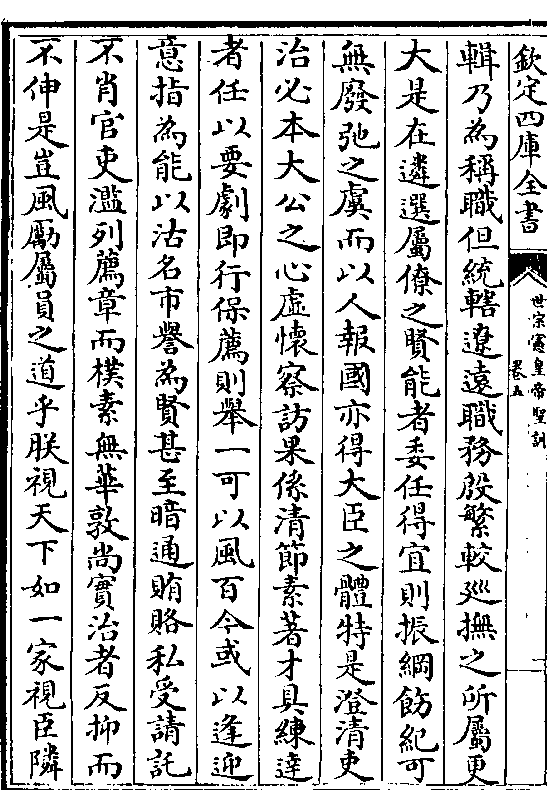 欽定四庫全書
世宗憲皇帝聖訓
卷五
一
輯乃為稱職但統轄遼遠職務殷繁較廵撫之所屬更
大是在遴選屬僚之賢能者委任得宜則振綱飭紀可
無廢弛之虞而以人報國亦得大臣之體特是澄清吏
治必本大公之心虛懷察訪果係清節素著才具練達
者任以要劇即行保薦則舉一可以風百今或以逢迎
意指為能以沽名市譽為賢甚至暗通賄賂私受請託
不肖官吏濫列薦章而樸素無華敦尚實治者反抑而
不伸是豈風勵屬員之道乎朕視天下如一家視臣隣